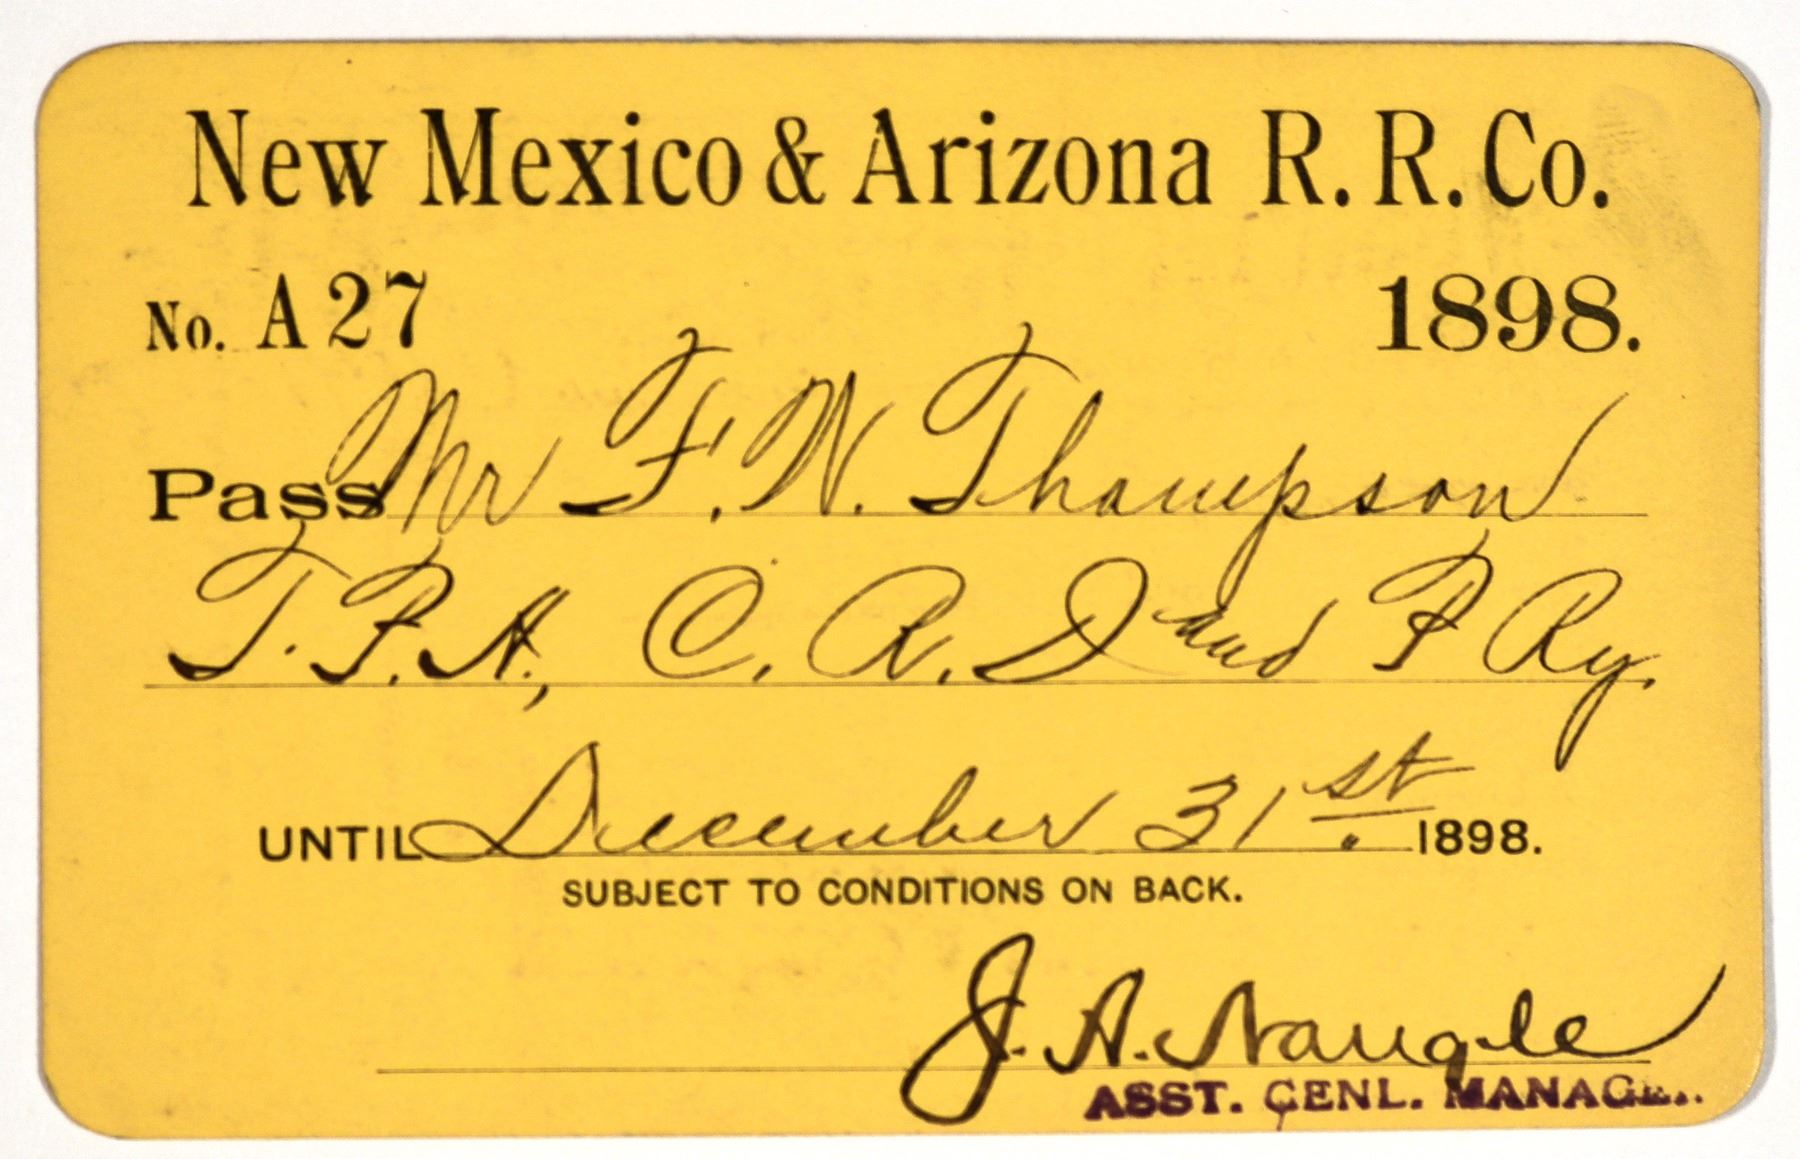 New Mexico & Arizona R. R. Co.
No. A 27 1898.
Pass Mr F. N. Thompson
T. P. A., C. R. I and P Ry.
UNTIL December 31st. 1898.
SUBJECT TO CONDITIONS ON BACK.
J. A. Naugle
ASST. GENL. MANAGER.